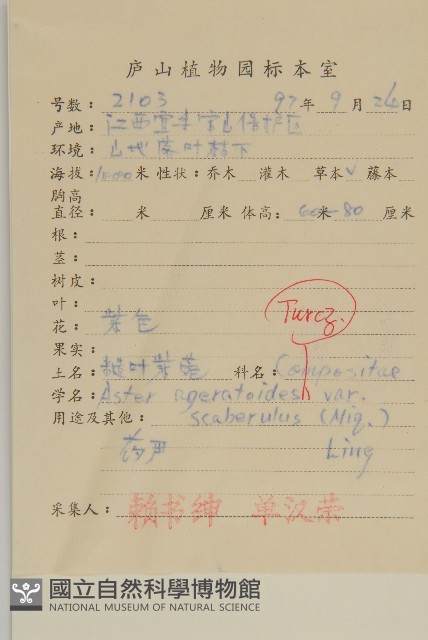 庐山植物园标本室
号数：2103 97年9月24日
产地：江西宜丰官山保护区
环境：山地落叶林下
海拔：1000米 性状：乔木 灌木 草本✓ 藤本
胸高
直径： 米 厘米 体高：60米-80 厘米
根：
茎：
树皮：
叶：
Turcz.
花：紫色
果实：
土名：糙叶紫菀 科名：Compositae
学名：Aster ageratoides var.
用途及其他： scaberulus (Miq.)
药用 Ling
采集人：赖书绅 单汉荣
國立自然科學博物館
NATIONAL MUSEUM OF NATURAL SCIENCE